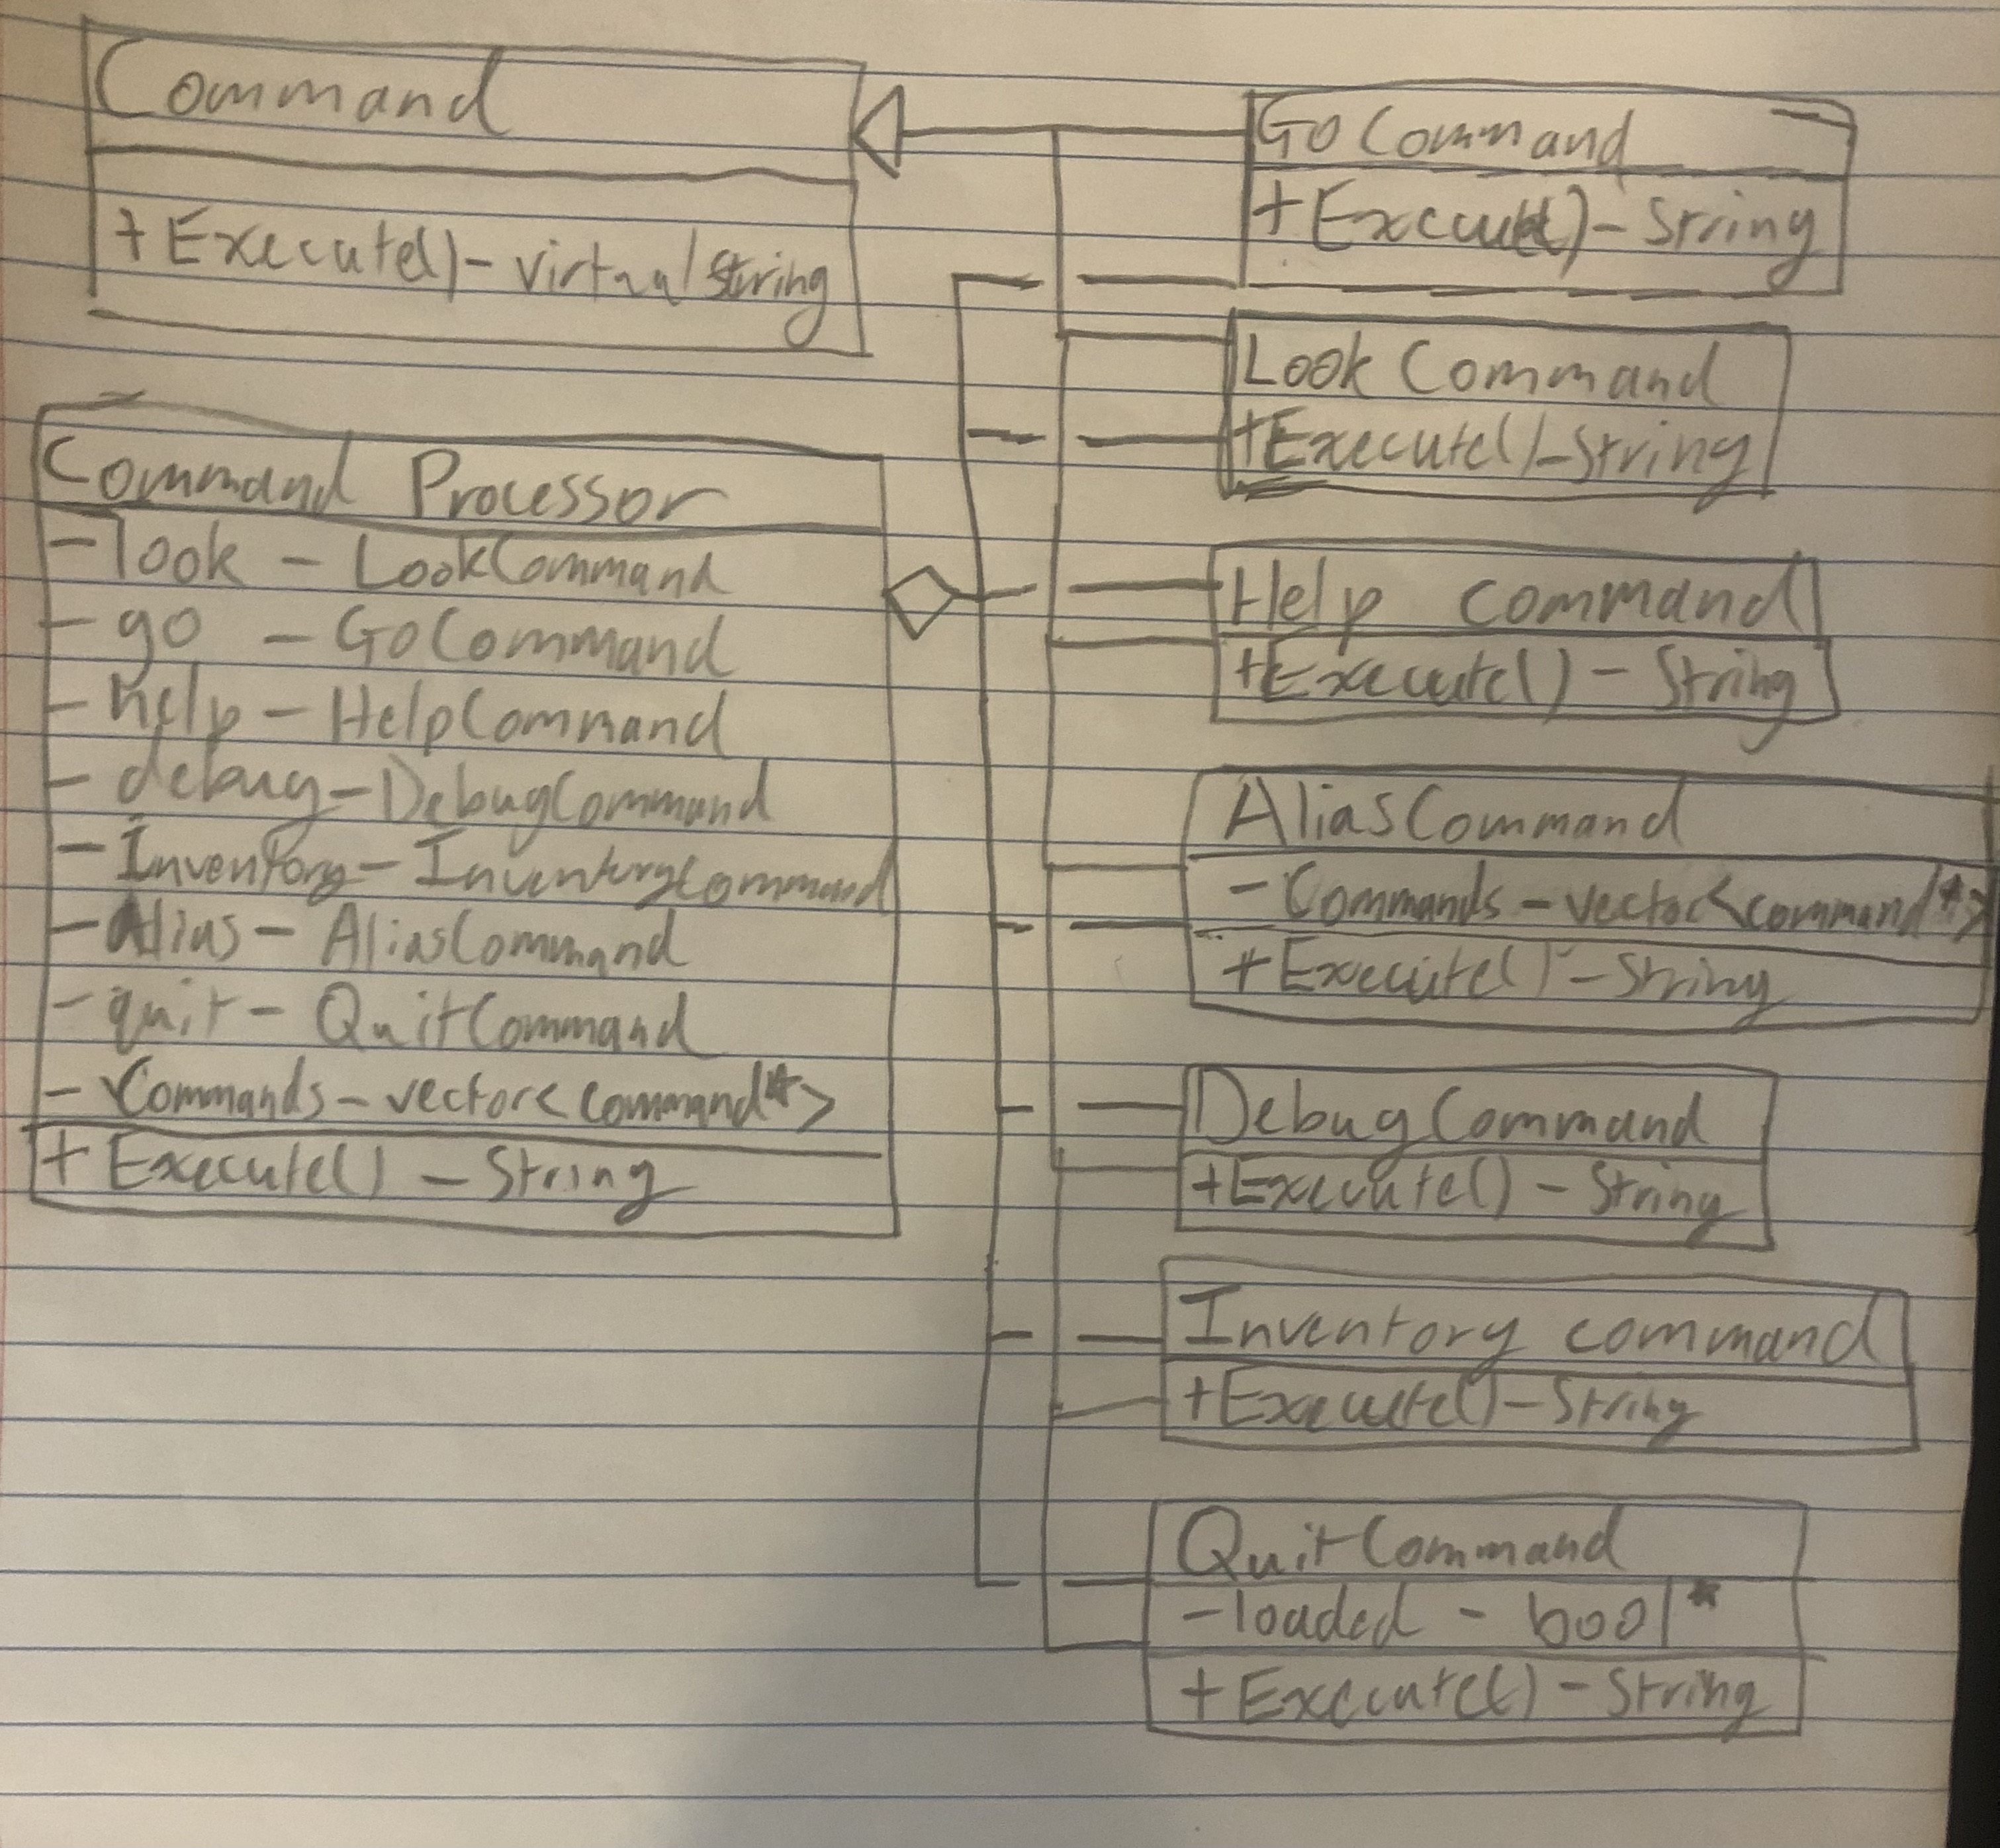 Command
+ Execute() - virtual String
Command Processor
- look - LookCommand
- go - GoCommand
- help - HelpCommand
- debug - DebugCommand
- Inventory - InventoryCommand
- Alias - AliasCommand
- quit - QuitCommand
- Commands - vector<command*>
+ Execute() - String
Go Command
+ Execute() - String
Look Command
+ Execute() - String
Help command
+ Execute() - String
AliasCommand
- Commands - vector<command*>
+ Execute() - String
DebugCommand
+ Execute() - String
Inventory command
+ Execute() - String
QuitCommand
- loaded - bool*
+ Execute() - String